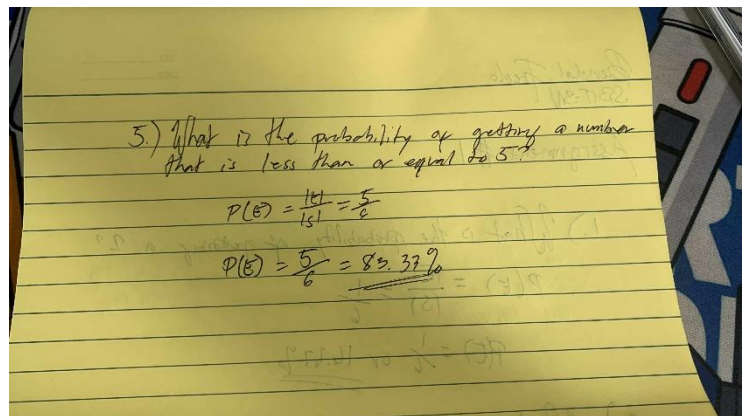 5.) What is the probability of getting a number
that is less than or equal to 5?
P(E) = |E|/|S| = 5/6
P(E) = 5/6 = 83.33%